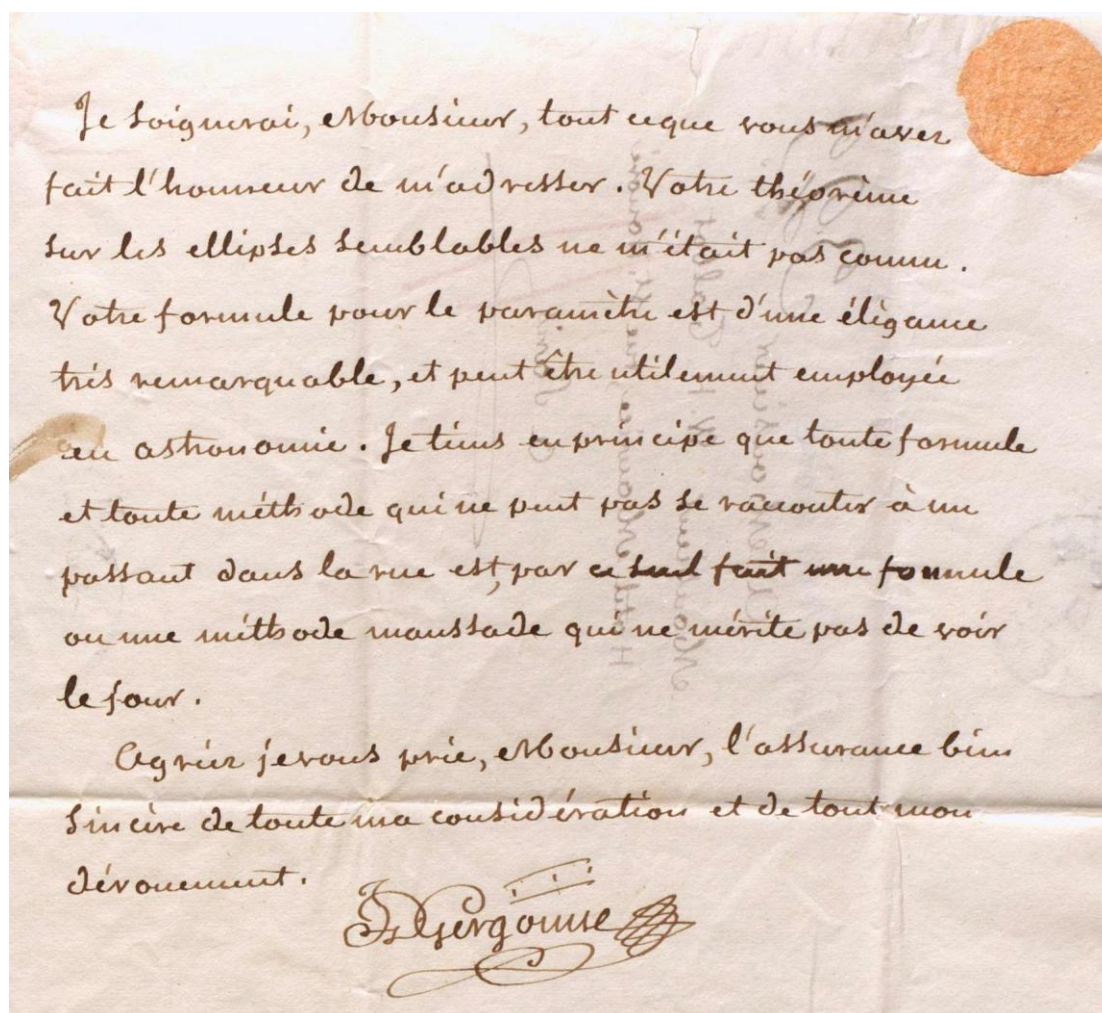 Je soignerai, Monsieur, tout ce que vous m'avez
fait l'honneur de m'adresser. Votre théorème
sur les ellipses semblables ne m'était pas connu.
Votre formule pour le paramètre est d'une élégance
très remarquable, et peut être utilement employée
en astronomie. Je tiens en principe que toute formule
et toute méthode qui ne peut pas se raconter à un
passant dans la rue est, par ce seul fait une formule
ou une méthode maussade qui ne mérite pas de voir
le jour.
Agréez je vous prie, Monsieur, l'assurance bien
sincère de toute ma considération et de tout mon
dévouement.
JDGergonne